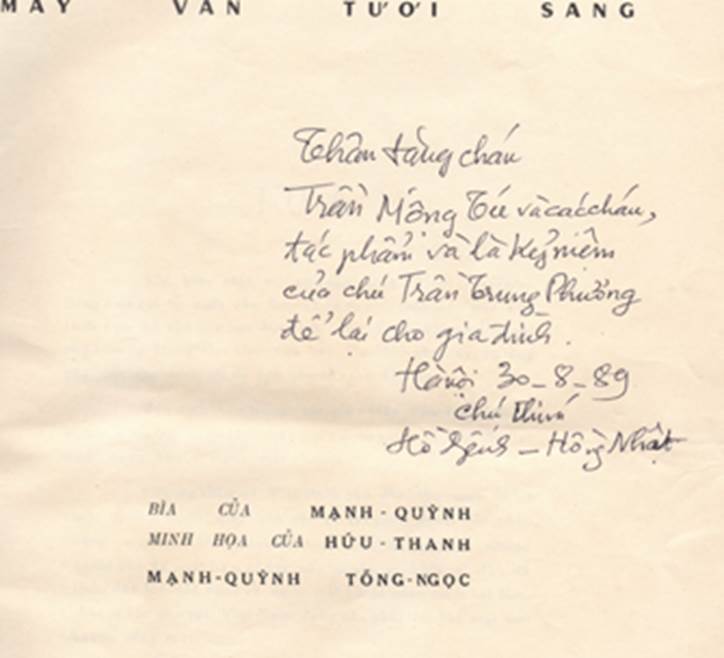 MAY VAN TƯƠI SANG
Thân tặng cháu
Trần Mộng Tú và các cháu,
tác phẩm và là kỷ niệm
của chú Trần Trung Phương
để lại cho gia đình.
Hà nội 30-8-89
chú thím
Hồ Dzếnh - Hồng Nhật
BÌA CỦA MẠNH-QUỲNH
MINH HỌA CỦA HỮU-THANH
MẠNH-QUỲNH TỐNG-NGỌC